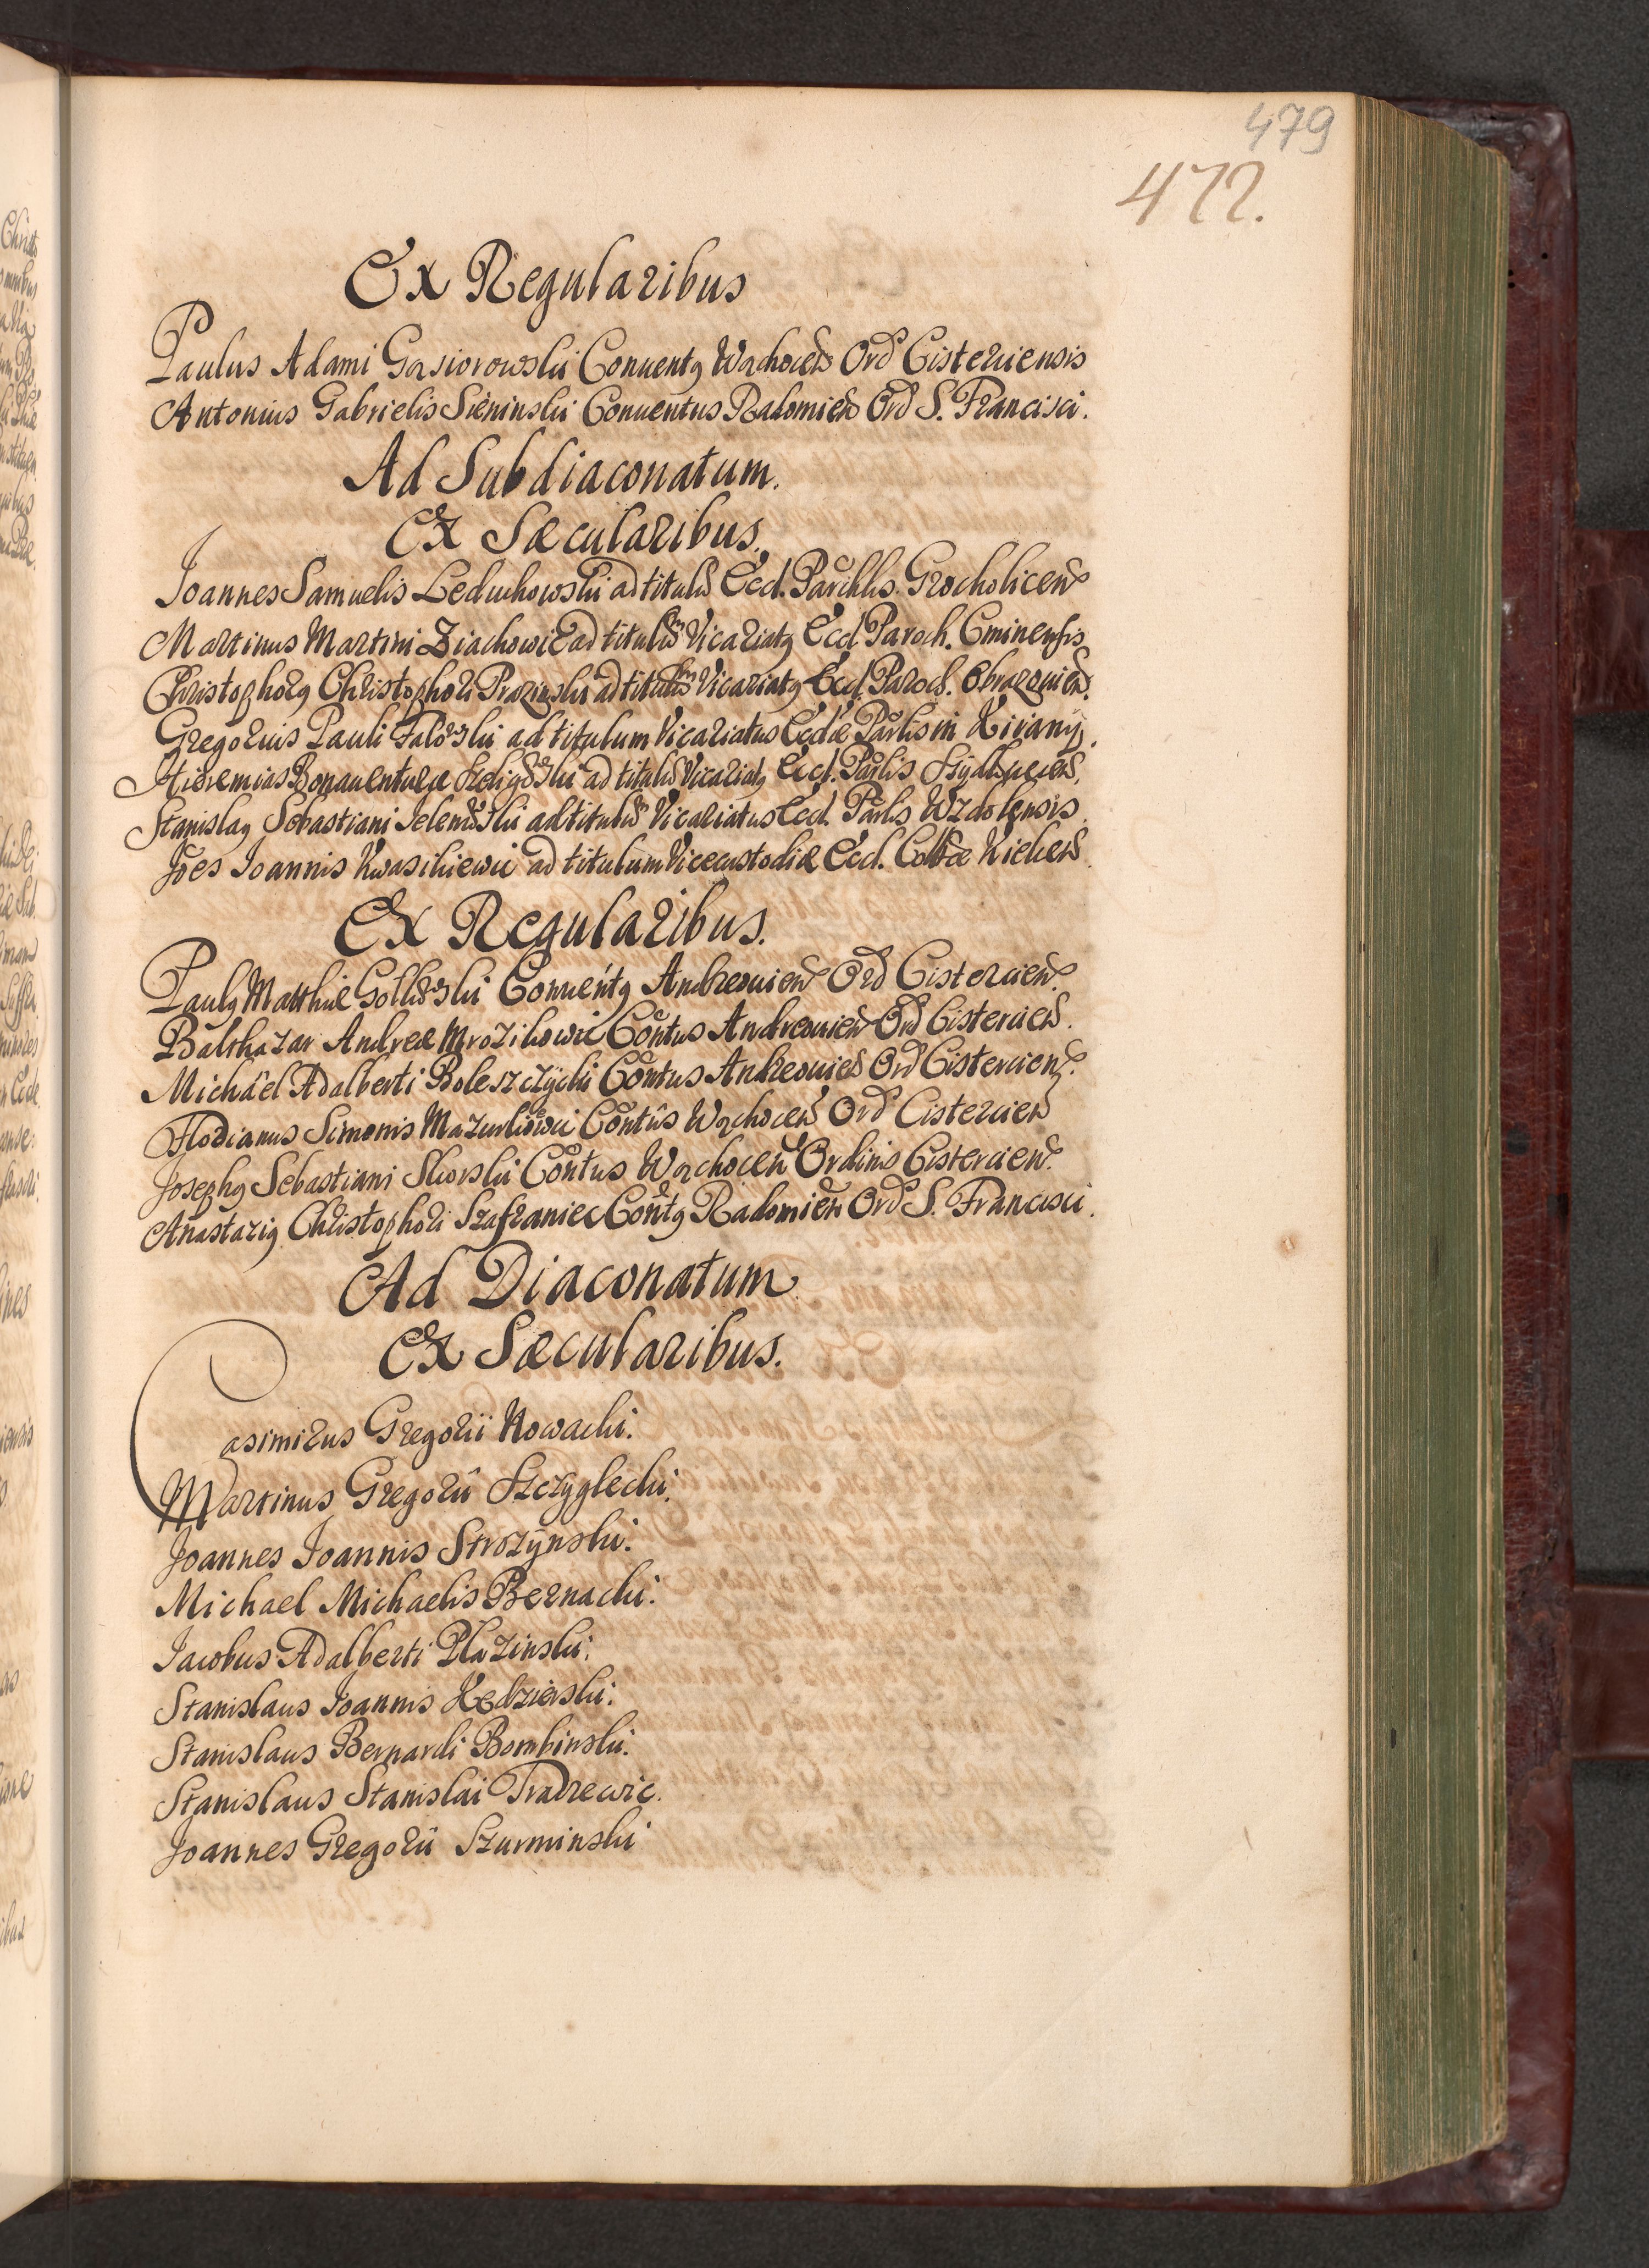 479
472.
Ex Regularibus
Paulus Adami Gąsiorowski Conventꝯ Wąchocen Ord Cisterciensis
Antonius Gabrielis Sieninski Conuentus Radomien Ord S. Francisci.
Ad Subdiaconatum.
Ex Sæcularibus.
Joannes Samuelis Leduchowski ad titulū Eccl. Parchlis. Grocholicen
Martinus Martini Ziachowic ad titulū Vicariatꝯ Eccl Paroch. Cminensis
Christophorꝯ Christophori Prazinski ad titulū Vicariatꝯ Eccl. Paroch. Obrazouien.
Gregorius Pauli Falowski ad titulum Vicariatus Eccłæ Parlis in Kiiany.
Hieremias Bonauenturæ Szeligowski ad titulū Vicariatꝯ Eccl. Parlis Szydłouecen.
Stanislaꝯ Sebastiani Jelenowski ad titulū Vicariatus Eccl. Parlis Wzdolensis.
Joẽs Joannis Kwasikiewic ad titulum Vicecustodiæ Eccl. Collæ Kielcen
Ex Regularibus.
Paulꝯ Matthiæ Golkowski Conuentꝯ Andreouien Ord Cistercien.
Balthazar Andreæ Mrozikowic Contus Andreouien Ord Cistercien.
Michaël Adalberti Boleszczycki Contus Andreouien Ord Cistercien.
Florianus Simonis Mazurkowic Contûs Wąchocen Ord Cistercien
Josephꝯ Sebastiani Skorski Contus Wąchocen Ordinis Cistercien.
Anastaziꝯ Christophori Szafraniec Contꝯ Radomien Ord S. Francisci.
Ad Diaconatum
Ex Sæcularibus.
Casimirus Gregorii Nowacki.
Martinus Gregorii Szczyglecki.
Joannes Joannis Strozynski.
Michael Michaelis Bernacki.
Jacobus Adalberti Płazinski.
Stanislaus Joannis Kędzierski.
Stanislaus Bernardi Bombinski.
Stanislaus Stanislai Tradzewic.
Joannes Gregorii Szurminski